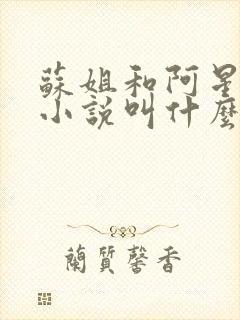 蘇姐和阿星
小說叫什麼
蘭質馨香